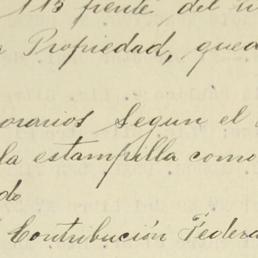 113 frente del
Propiedad, que
orarios Segun el
la estampilla como
do
Contribución Federa